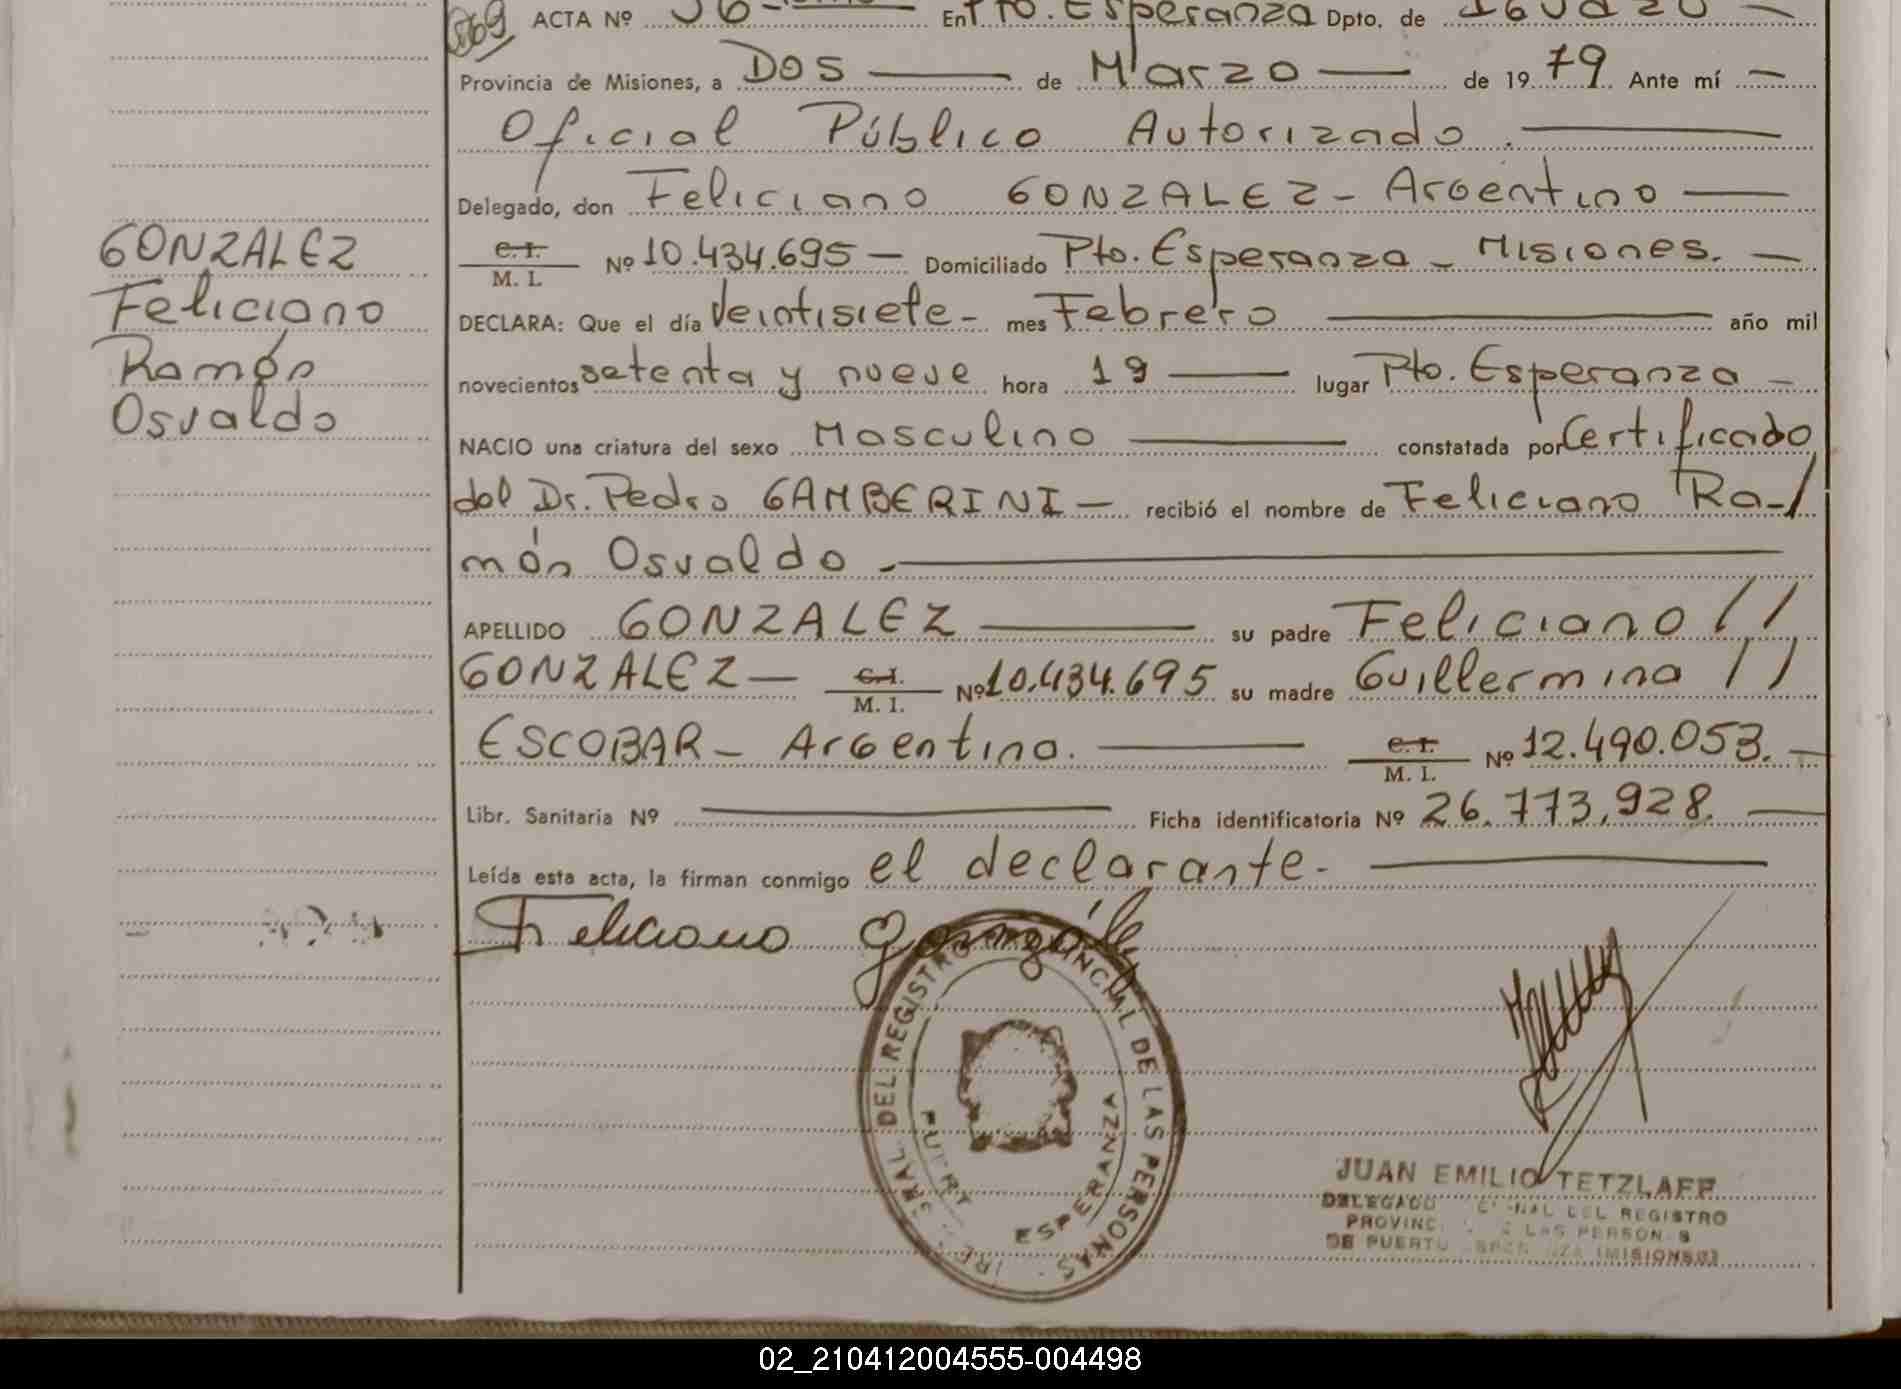 869 ACTA Nº 56 En Pto. Esperanza Dpto. de Iguazú —
Provincia de Misiones, a Dos — de Marzo — de 1979 Ante mí —
Oficial Público Autorizado. —
Delegado, don Feliciano GONZALEZ - Argentino —
C.I. M. I. Nº 10.434.695 — Domiciliado Pto. Esperanza - Misiones. —
DECLARA: Que el día Veintisiete - mes Febrero — año mil
novecientos setenta y nueve hora 19 — lugar Pto. Esperanza -
NACIO una criatura del sexo Masculino — constatada por Certificado
del Dr. Pedro GAMBERINI — recibió el nombre de Feliciano Ra-/
món Osvaldo. —
APELLIDO GONZALEZ — su padre Feliciano //
GONZALEZ — C.I. M. I. Nº 10.434.695 su madre Guillermina //
ESCOBAR - Argentina. — C.I. M. I. Nº 12.490.053. —
Libr. Sanitaria Nº — Ficha identificatoria Nº 26.773.928. —
Leída esta acta, la firman conmigo el declarante. —
Feliciano González
GONZALEZ
Feliciano
Ramón
Osvaldo
DEL REGISTRO PROVINCIAL DE LAS PERSONAS
ESPERANZA
JUAN EMILIO TETZLAFF
DELEGADO DEL REGISTRO
LAS
DE PUERTO (MISIONES)
02_210412004555-004498